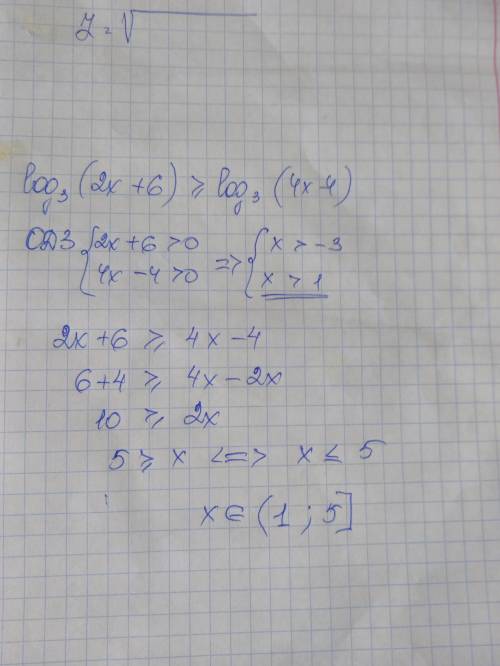 y = √
log₃ (2x + 6) ⩾ log₃ (4x - 4)
ОДЗ { 2x + 6 > 0 => { x > -3
4x - 4 > 0 x > 1
2x + 6 ⩾ 4x - 4
6 + 4 ⩾ 4x - 2x
10 ⩾ 2x
5 ⩾ x <=> x ≤ 5
x ∈ (1 ; 5]